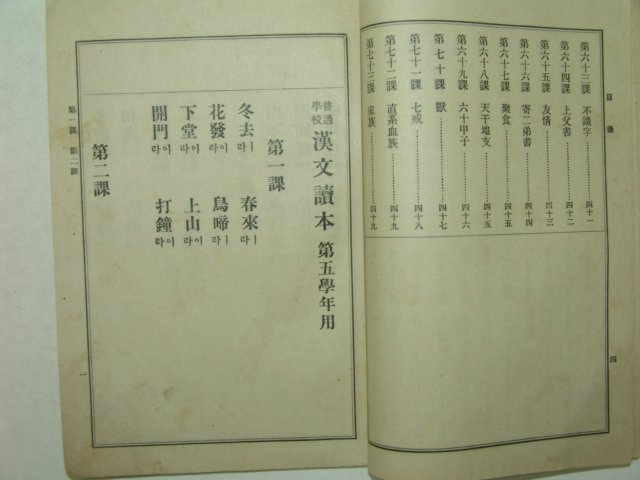 目錄
第六十三課 不識字 四十一
第六十四課 上父書 四十二
第六十五課 友情 四十三
第六十六課 寄二弟書 四十四
第六十七課 聚食 四十五
第六十八課 天干地支 四十五
第六十九課 六十甲子 四十六
第七十課 獸 四十七
第七十一課 七戒 四十八
第七十二課 直系血族 四十九
第七十三課 家族 四十九
四
普通學校 漢文讀本 第五學年用
第一課
冬去라ㅣ 春來라ㅣ
花發라이 鳥啼라ㅣ
下堂라이 上山라이
開門라이 打鐘라이
第二課
第一課 第二課
一